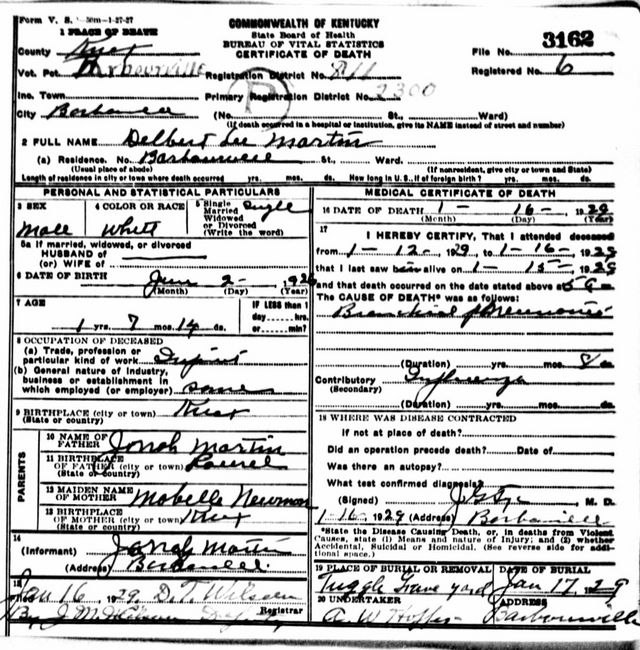 Form V. S. 50m-1-27-27
COMMONWEALTH OF KENTUCKY
State Board of Health
BUREAU OF VITAL STATISTICS
CERTIFICATE OF DEATH
1 PLACE OF DEATH
County Knox
File No. 3162
Vot. Pct. Barbourville Registration District No. 811
Registered No. 6
Inc. Town Primary Registration District No. 2300
City (No. St., Ward)
(If death occurred in a hospital or institution, give its NAME instead of street and number)
2 FULL NAME Delbert Lee Martin
(a) Residence. No. Barbourville St., Ward.
(Usual place of abode) (If nonresident, give city or town and State)
Length of residence in city or town where death occurred yrs. mos. ds. How long in U.S., if of foreign birth? yrs. mos. ds.
PERSONAL AND STATISTICAL PARTICULARS
3 SEX
Male
4 COLOR OR RACE
White
5 Single
Married
Widowed
or Divorced
(Write the word)
Single
5a If married, widowed, or divorced
HUSBAND of
(or) WIFE of
6 DATE OF BIRTH June 2-
(Month) (Day) (Year)
7 AGE
1 yrs. 7 mos. 14 ds.
IF LESS than 1
day hrs.
or min?
8 OCCUPATION OF DECEASED
(a) Trade, profession or
particular kind of work Infant
(b) General nature of Industry,
business or establishment in
which employed (or employer) same
9 BIRTHPLACE (city or town) Knox
(State or country)
PARENTS
10 NAME OF
FATHER Jonah Martin
11 BIRTHPLACE
OF FATHER (city or town) Laurel
(State or country)
12 MAIDEN NAME
OF MOTHER Mobelle Newman
13 BIRTHPLACE
OF MOTHER (city or town) Knox
(State or country)
14
(Informant) Jonah Martin
(Address)
15
Filed Jan 16, 1929. D.T. Wilson
Registrar
By J M
MEDICAL CERTIFICATE OF DEATH
16 DATE OF DEATH 1- 16- 1929
(Month) (Day) (Year)
17
I HEREBY CERTIFY, That I attended deceased
from 1-12-, 1929, to 1-16-, 1929
that I last saw him alive on 1-15-, 1929
and that death occurred on the date stated above at
The CAUSE OF DEATH* was as follows:
Bronchial pneumonia
(Duration) yrs. mos. 8 ds
Contributory Influenza
(Secondary)
(Duration) yrs. mos. ds.
18 WHERE WAS DISEASE CONTRACTED
If not at place of death?
Did an operation precede death? Date of
Was there an autopsy?
What test confirmed diagnosis?
(Signed) M. D.
1-16-, 1929 (Address)
*State the Disease Causing Death, or, in deaths from Violent
Causes, state (1) Means and nature of Injury; and (2) whether
Accidental, Suicidal or Homicidal. (See reverse side for addi-
tional space.)
19 PLACE OF BURIAL OR REMOVAL DATE OF BURIAL
Tuggle Grave yard Jan 17, 1929
20 UNDERTAKER ADDRESS
A. W Barbourville